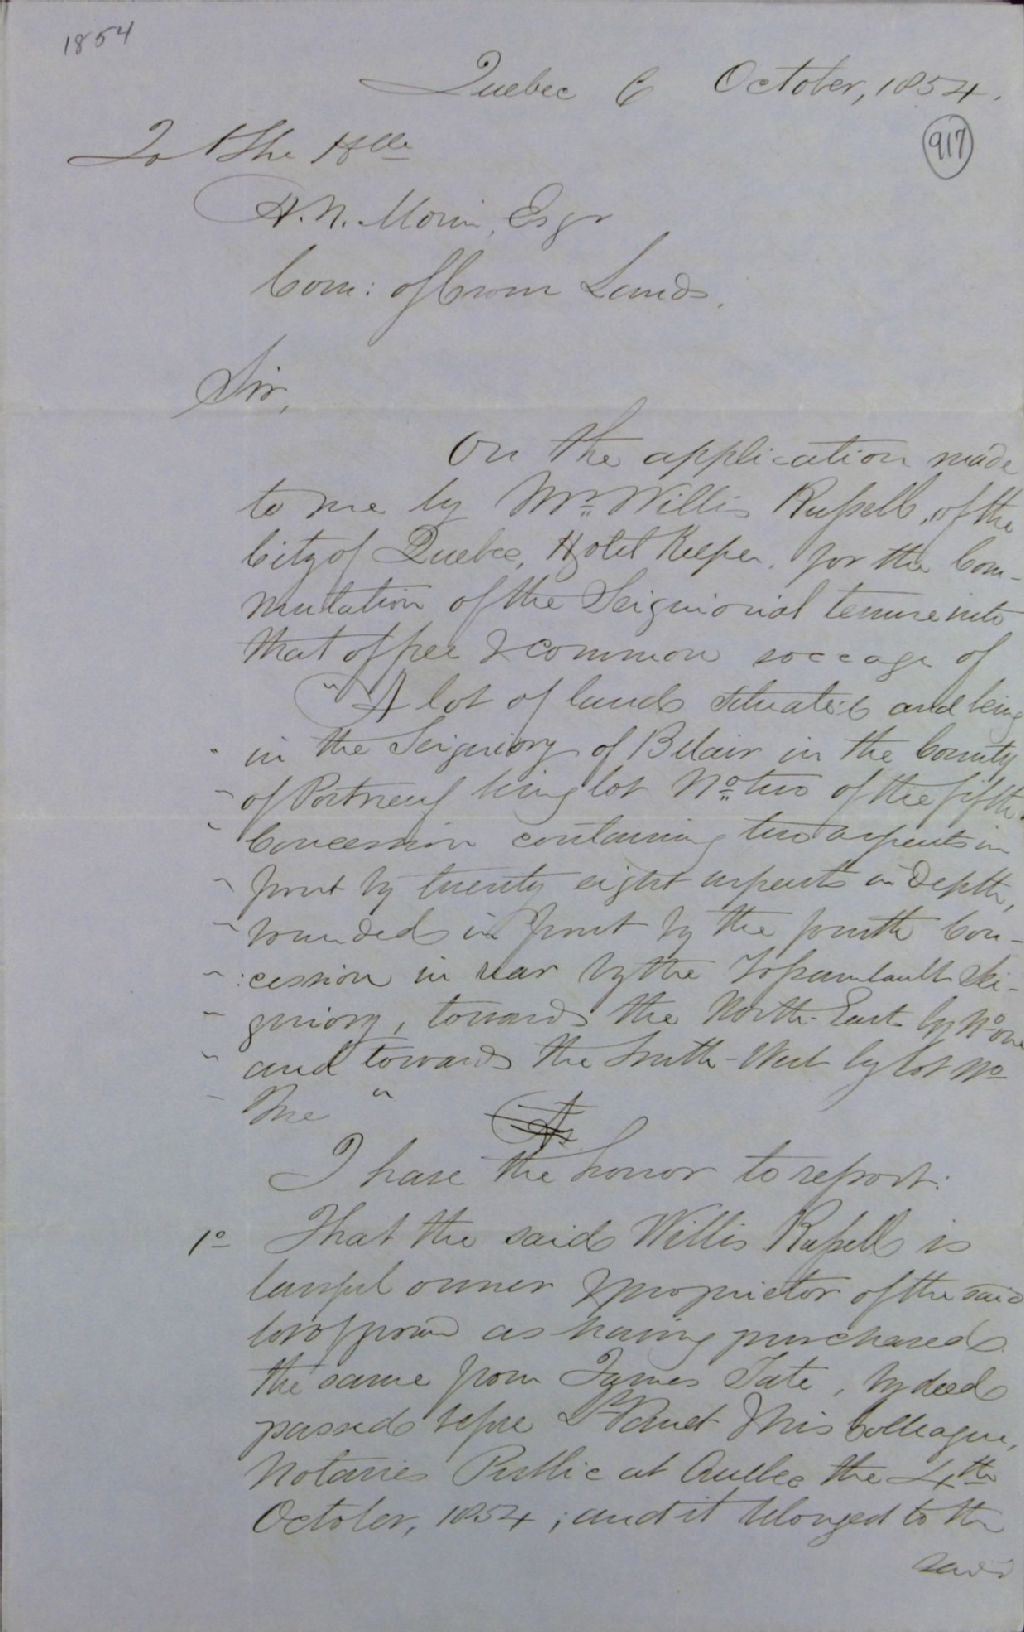 1854
Quebec 6 October, 1854.
917
To The Hble
A. N. Morin, Esqr
Com: of Crown Lands.
Sir,
On the application made
to me by Mr. Willis Russell, of the
City of Quebec, Hotel Keeper, for the Com-
mutation of the Seigniorial tenure into
that of free & common soccage of
"A lot of land situated and being
in the Seigniory of Belair in the County
of Portneuf being lot No two of the fifth
Concession containing two arpents in
front by twenty eight arpents in depth,
bounded in front by the fourth Con-
cession in rear by the Fossambault Sei-
gniory, towards the North-East by No one
and towards the South-West by lot No
"
I have the honor to report:
1o That the said Willis Russell is
lawful owner & proprietor of the said
lot of ground as having purchased
the same from James Tate, by deed
passed before Panet & his Colleague,
Notaries Public at Quebec the 4th
October, 1854; and it belonged to the
said